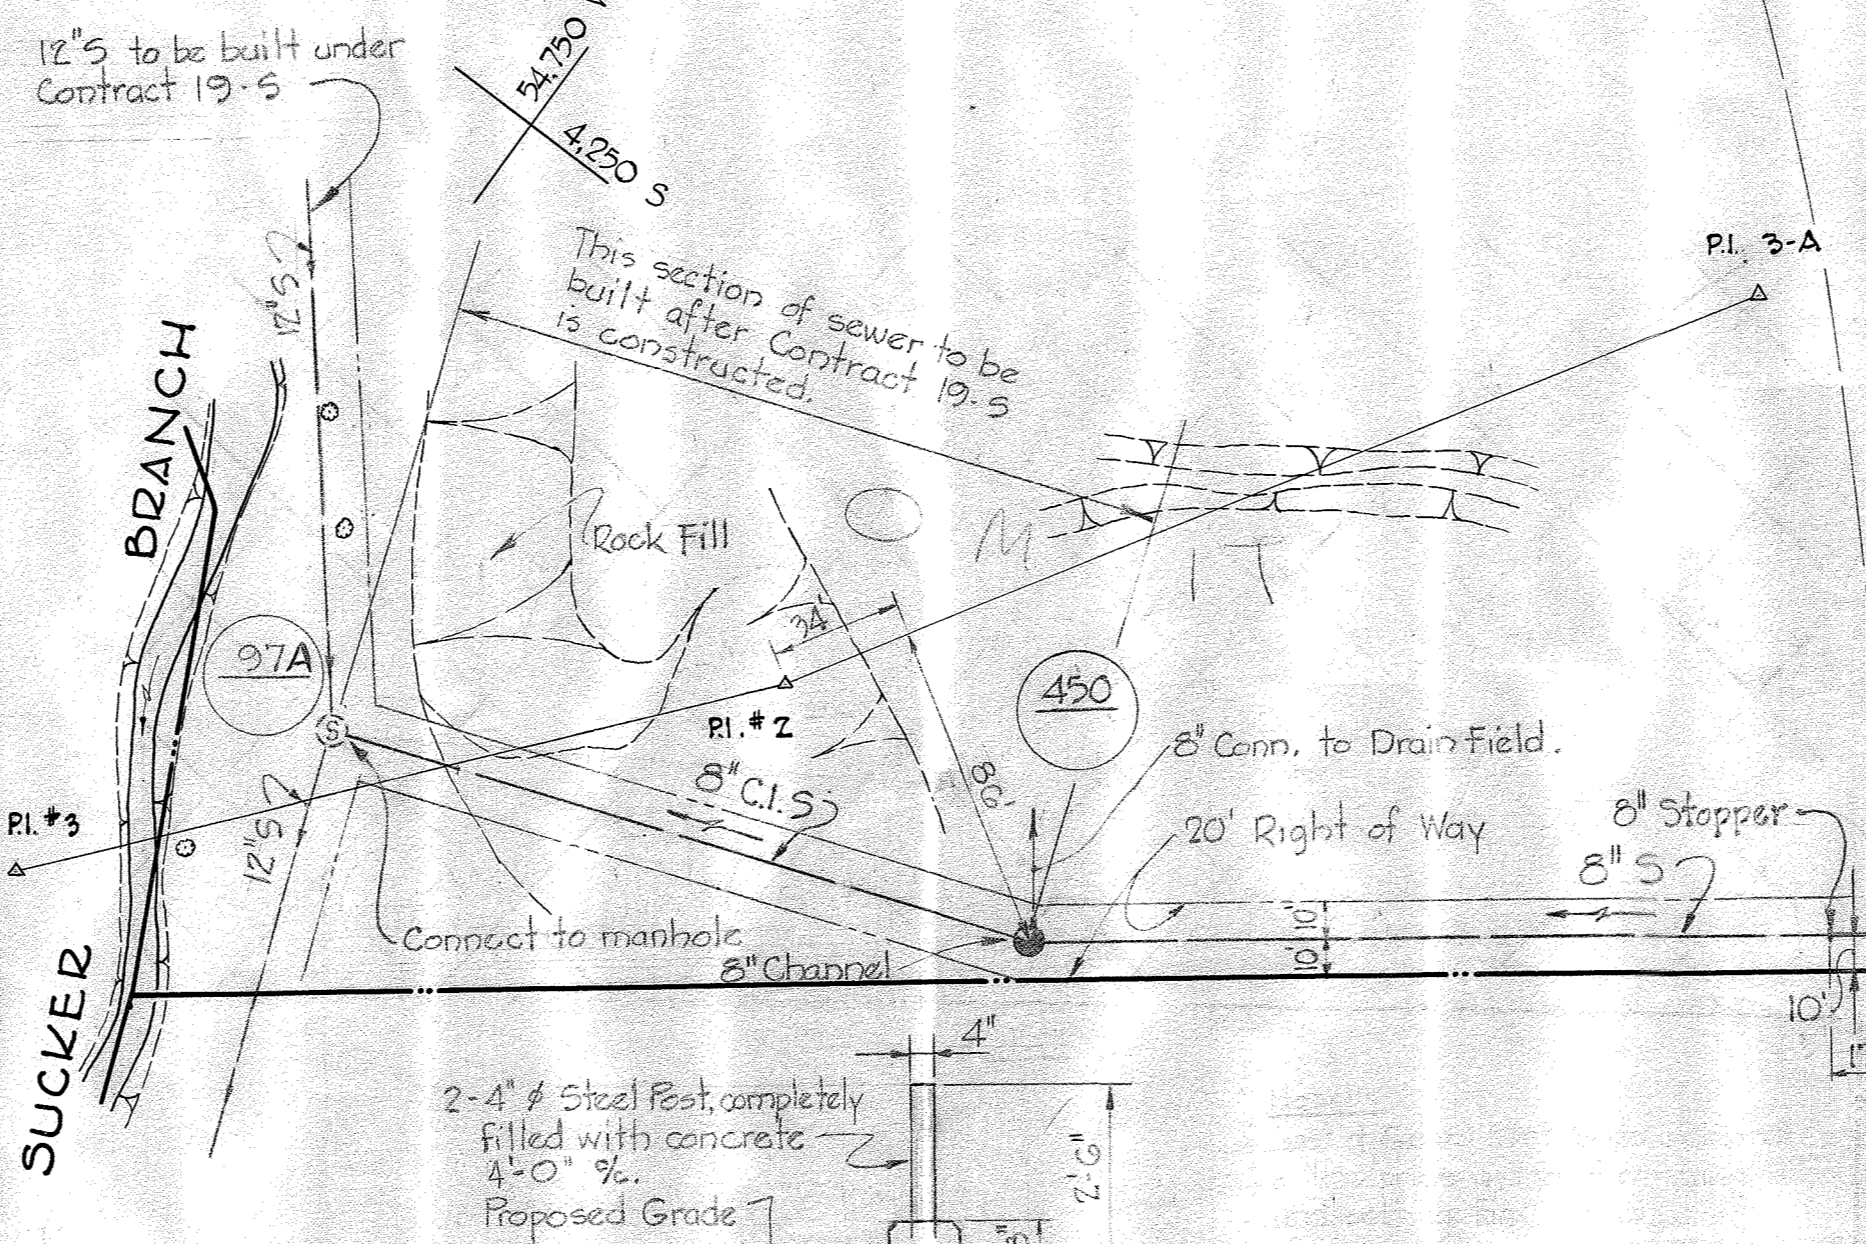 12"S to be built under
Contract 19-S
54,750
4,250 S
12"S
This section of sewer to be
built after Contract 19-S
is constructed.
P.I. 3-A
BRANCH
Rock Fill
O M I T
34'
97A
450
P.I. #2
8" C.I.S.
86'
8" Conn. to Drain Field.
P.I. #3
12"S
20' Right of Way
8" Stopper
8" S
Connect to manhole
8" Channel
10'
10'
10'
SUCKER
4"
2-4" ∅ Steel Post, completely
filled with concrete
4'-0" c/c.
2'-6"
Proposed Grade